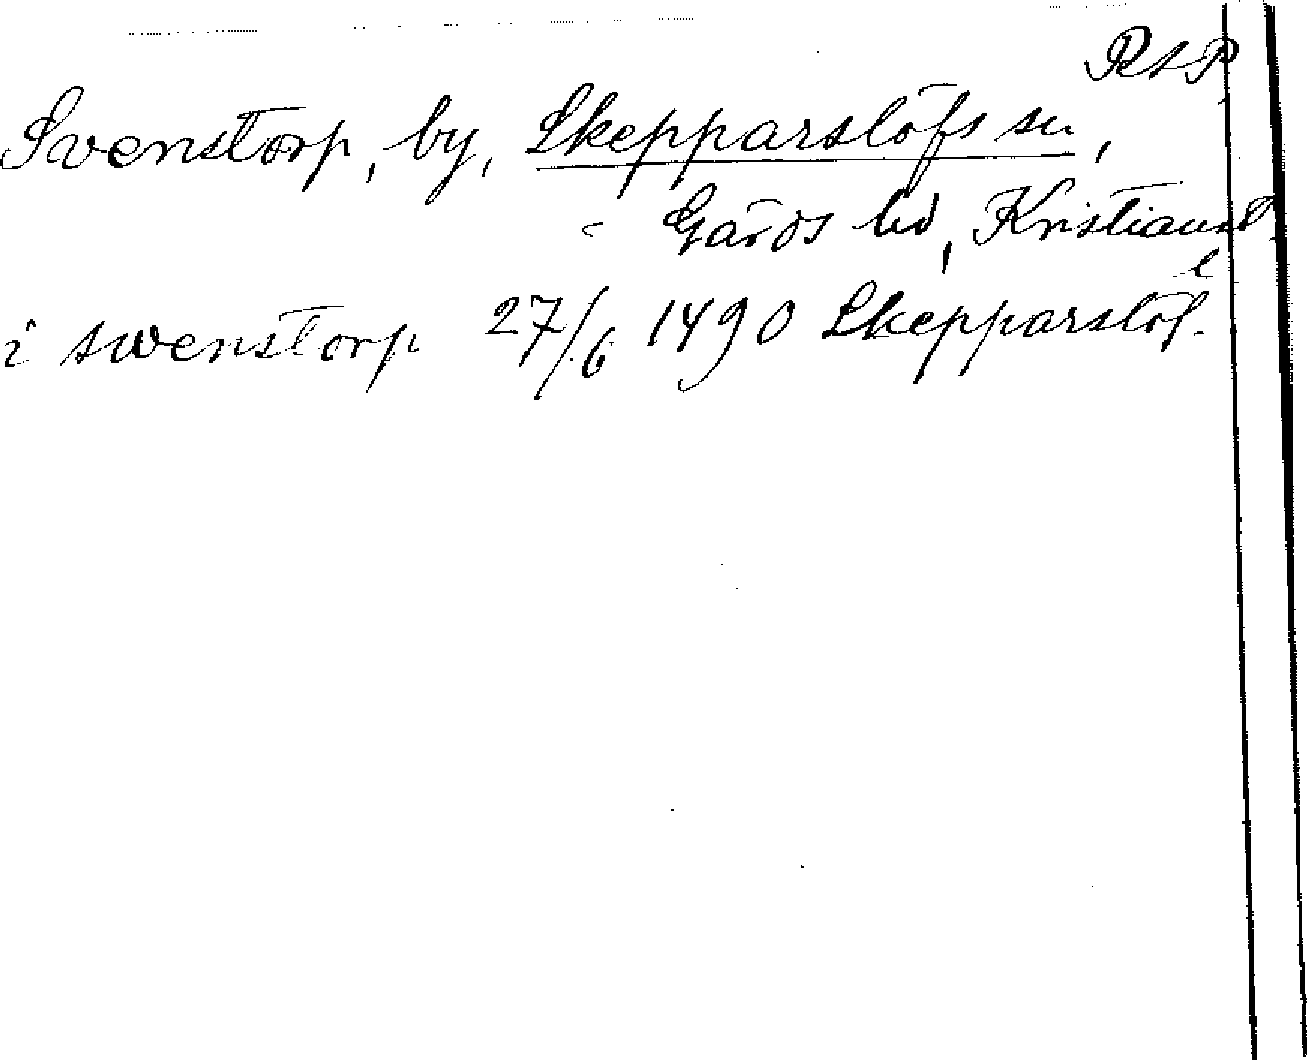 RAP
Svenstorp, by, Skepparslöfs sn,
Gärds hd, Kristianst.
l
i swenstorp 27/6 1490 Skepparslöf.